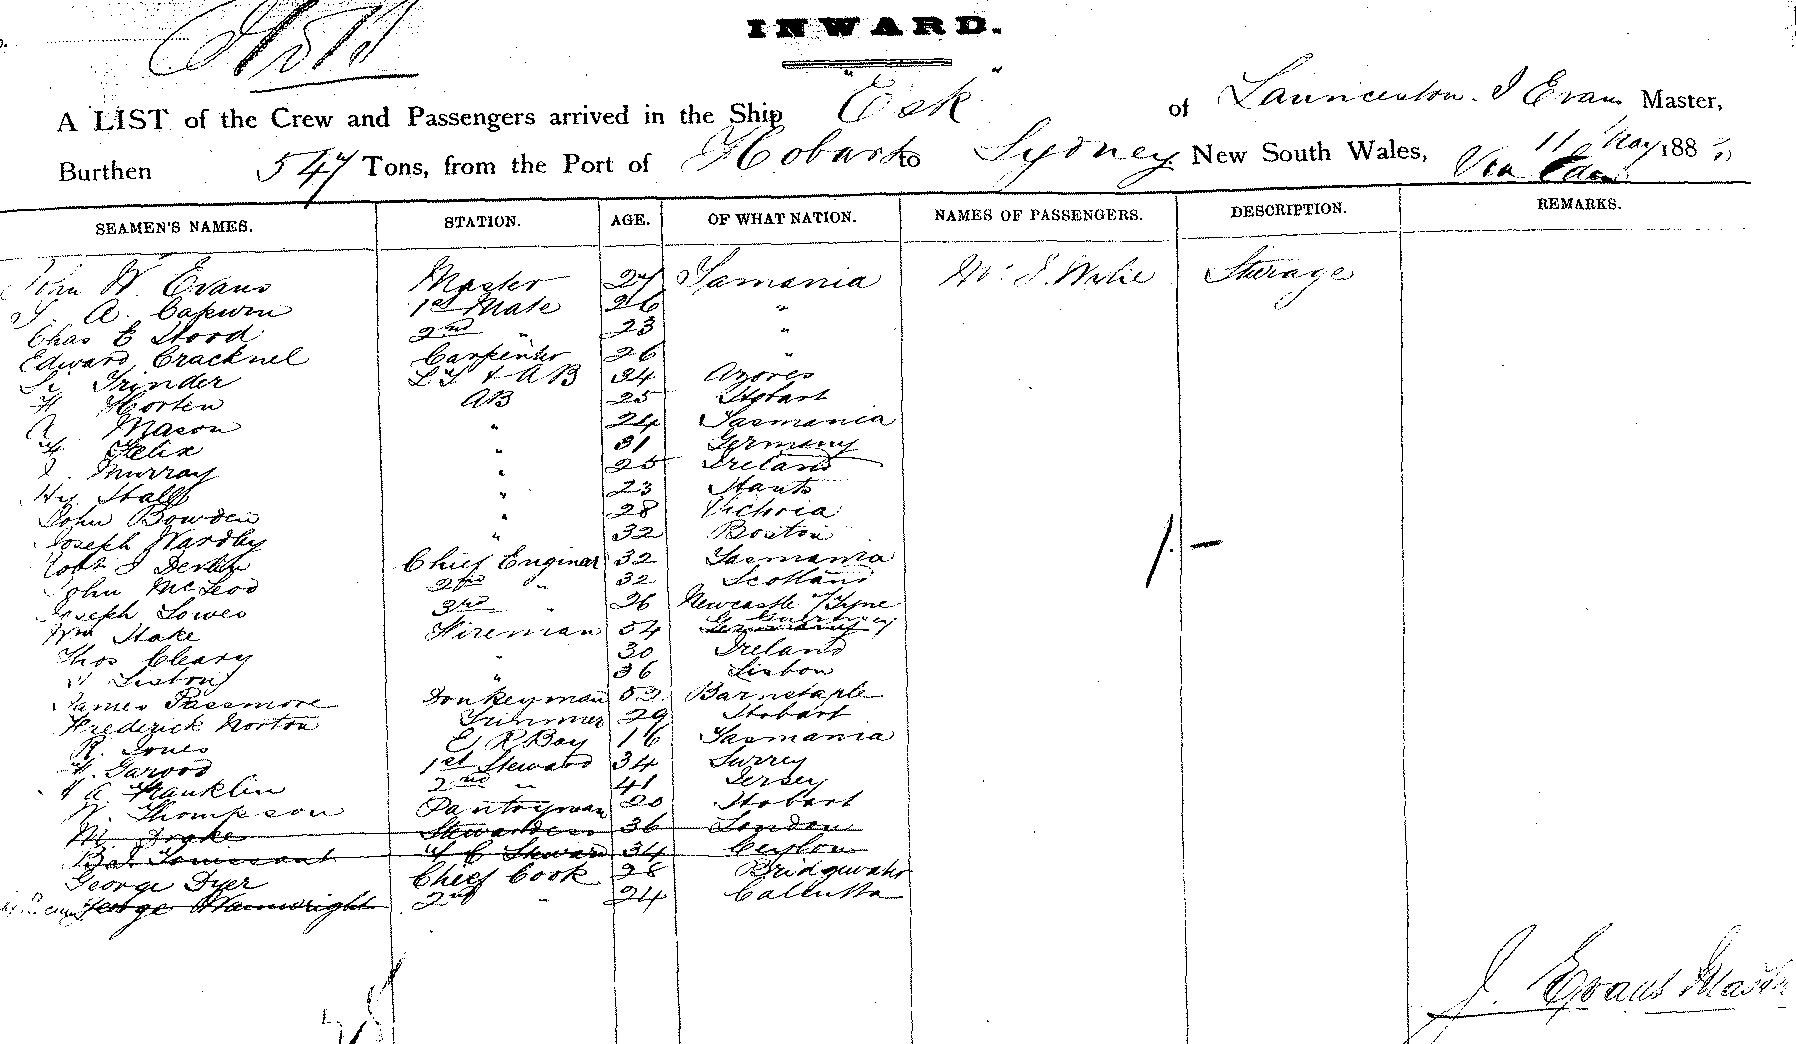 INWARD.
A LIST of the Crew and Passengers arrived in the Ship "Esk" of Launceston. J Evans Master,
Burthen 547 Tons, from the Port of Hobart to Sydney New South Wales, 11 May 188
Via Eden
SEAMEN'S NAMES. STATION. AGE. OF WHAT NATION. NAMES OF PASSENGERS. DESCRIPTION. REMARKS.
John W. Evans Master 27 Tasmania Mr J. Wylie Steerage
A. 1st Mate 26 "
Chas E Hood 2nd " 23 "
Edward Cracknel Carpenter 26 "
Trinder & AB Azores
Horten AB 25 Hobart
Mason " 24 Tasmania
Felix " 31 Germany
Murray " 25 Ireland
Hy Hall " 23 Hants
John Bowden " 28 Victoria
Joseph Wardby " 32 Boston
Robt J Chief Engineer 32 Tasmania
John McLeod 2nd " 32 Scotland
Joseph Lowes 3rd " 26 Newcastle o/Tyne
Wm Hake Fireman 54 Germany Guernsey
Thos Cleary " 30 Ireland
Lisbon " 36 Lisbon
James Passmore Donkeyman Barnstaple
Frederick Norton Trimmer 29 Hobart
R. Jones E R Boy 16 Tasmania
H. Garood 1st Steward 34 Surrey
A Franklin 2nd " 41 Jersey
W. Thompson Pantryman 20 Hobart
M. Drake Stewardess 36 London
F C Steward 34 Ceylon
George Dyer Chief Cook 28 Bridgewater
George Wainwright 2nd " 24 Calcutta
1. -
J. Evans Master